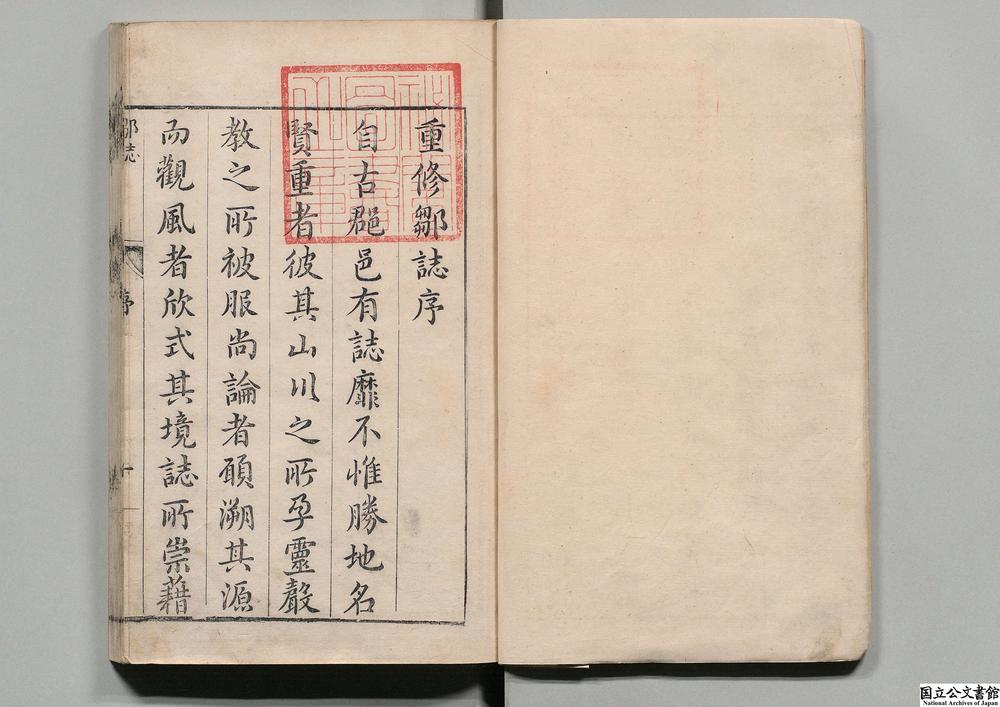 重修鄒誌序
自古郡邑有誌靡不惟勝地名
賢重者彼其山川之所孕靈聲
教之所被服尚論者願溯其源
而觀風者欣式其境誌所崇藉
鄒志
序
国立公文書館
National Archives of Japan